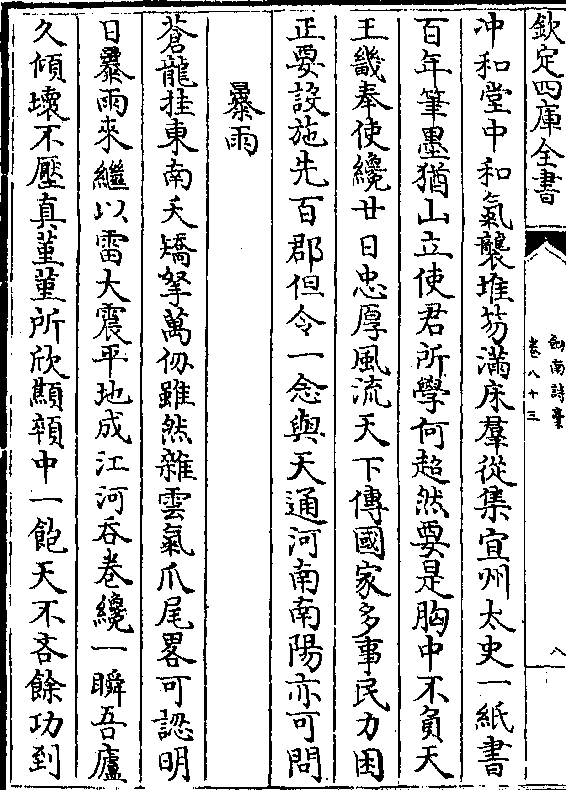 欽定四庫全書
劍南詩藁
卷八十三
八
沖和堂中和氣襲堆笏滿床羣從集宣州太史一紙書
百年筆墨猶山立使君所學何超然要是胸中不負天
王畿奉使纔廿日忠厚風流天下傳國家多事民力困
正要設施先百郡但令一念與天通河南南陽亦可問
暴雨
蒼龍挂東南夭矯拏萬仞雖然雜雲氣爪尾畧可認明
日暴雨來繼以雷大震平地成江河吞卷纔一瞬吾廬
久傾壞不壓真堇堇所欣顦顇中一飽天不吝餘功到